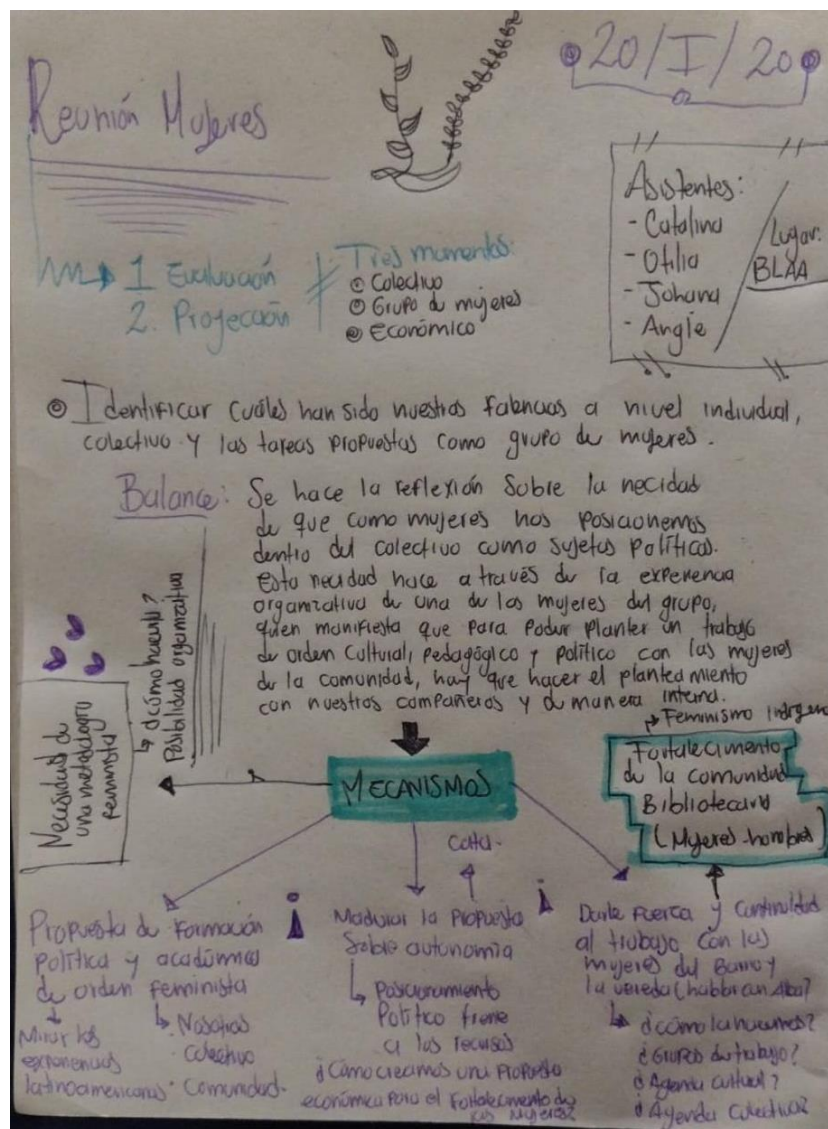 Reunión Mujeres
20/I/20
Asistentes:
- Catalina
- Otilia
- Johana
- Angie
Lugar:
BLAA
1 Evaluación
2. Proyección
Tres momentos:
Colectivo
Grupo de mujeres
Económico
Identificar cuáles han sido nuestras falencias a nivel individual,
colectivo y las tareas propuestas como grupo de mujeres.
Balance: Se hace la reflexión sobre la necidad
de que como mujeres nos posicionemos
dentro del colectivo como sujetas políticas.
esta necidad hace a través de la experiencia
organizativa de una de las mujeres del grupo,
quien manifiesta que para poder planter un trabajo
de orden cultural, pedagógico y político con las mujeres
de la comunidad, hay que hacer el planteamiento
con nuestros compañeros y de manera interna.
Necesidad de
una metodología
feminista
¿cómo hacerlo?
Posibilidad organizativa
MECANISMOS
Feminismo Indígena
Fortalecimiento
de la comunidad
Bibliotecaria
(Mujeres-hombres)
Propuesta de Formación
política y académica
de orden feminista
Mirar las
experiencias
latinoamericanas
Nosotras
Colectivo
Comunidad.
Cata.
Madurar la Propuesta
Sobre autonomía
Posicionamiento
Político frente
a los recursos
¿Cómo creamos una Propuesta
económica para el Fortalecimiento de
las mujeres?
Darle Fuerza y Continuidad
al trabajo con las
mujeres del Barrio y
la vereda (hablar con Alba?
¿cómo lo hacemos?
¿Grupos de trabajo?
¿Agenda cultural?
¿Agenda Colectiva?